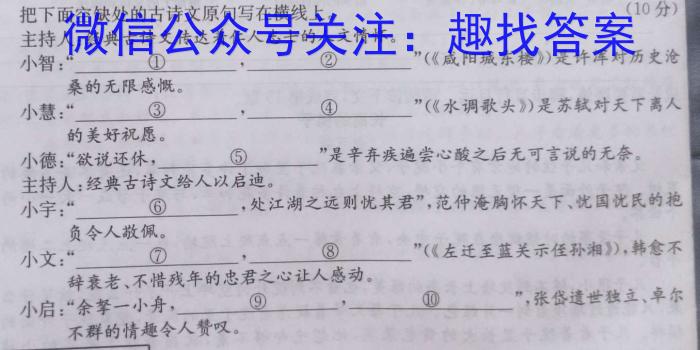 把下面空缺处的古诗文原句写在横线上。
(10分)
微信公众号关注：趣找答案
主持人:经典古诗文传达
小智:“①，②”(《咸阳城东楼》)是许浑对历史沧
桑的无限感慨。
小慧:“③，④”(《水调歌头》)是苏轼对天下离人
的美好祝愿。
小德:“欲说还休，⑤”是辛弃疾遍尝心酸之后无可言说的无奈。
主持人:经典古诗文给人以启迪。
小宇:“⑥,处江湖之远则忧其君”,范仲淹胸怀天下、忧国忧民的抱
负令人敬佩。
小文:“⑦，⑧”(《左迁至蓝关示侄孙湘》),韩愈不
辞衰老、不惜残年的忠君之心让人感动。
小启:“余拏一小舟，⑨，⑩”,张岱遗世独立、卓尔
不群的情趣令人赞叹。